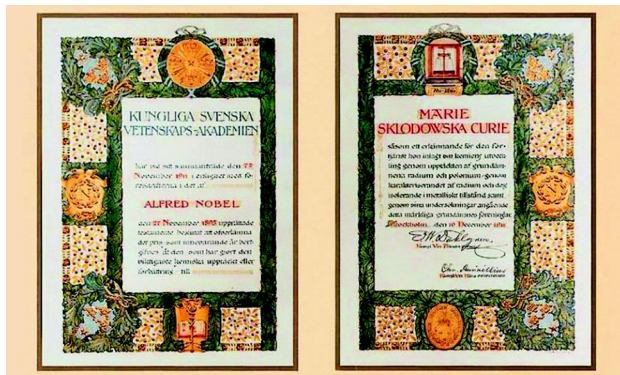 KUNGLIGA SVENSKA
VETENSKAPS-AKADEMIEN
har vid sitt sammanträde den
November 1911 i enlighet med
föreskrifterna i det af
ALFRED NOBEL
den 27 November 1895 upprättade
testamente beslutat att öfverlämna
det pris som innevarande år bort-
gifves åt den som har gjort den
viktigaste kemiska upptäckt eller
förbättring till
MARIE
SKLODOWSKA CURIE
såsom ett erkännande för den för-
tjänst hon inlagt om kemiens utveck-
ling genom upptäckten af grundäm-
nena radium och polonium genom
karakteriserandet af radium och dess
isolerande i metalliskt tillstånd samt
genom sina undersökningar angående
detta märkliga grundämnes föreningar
Stockholm den 10 December 1911